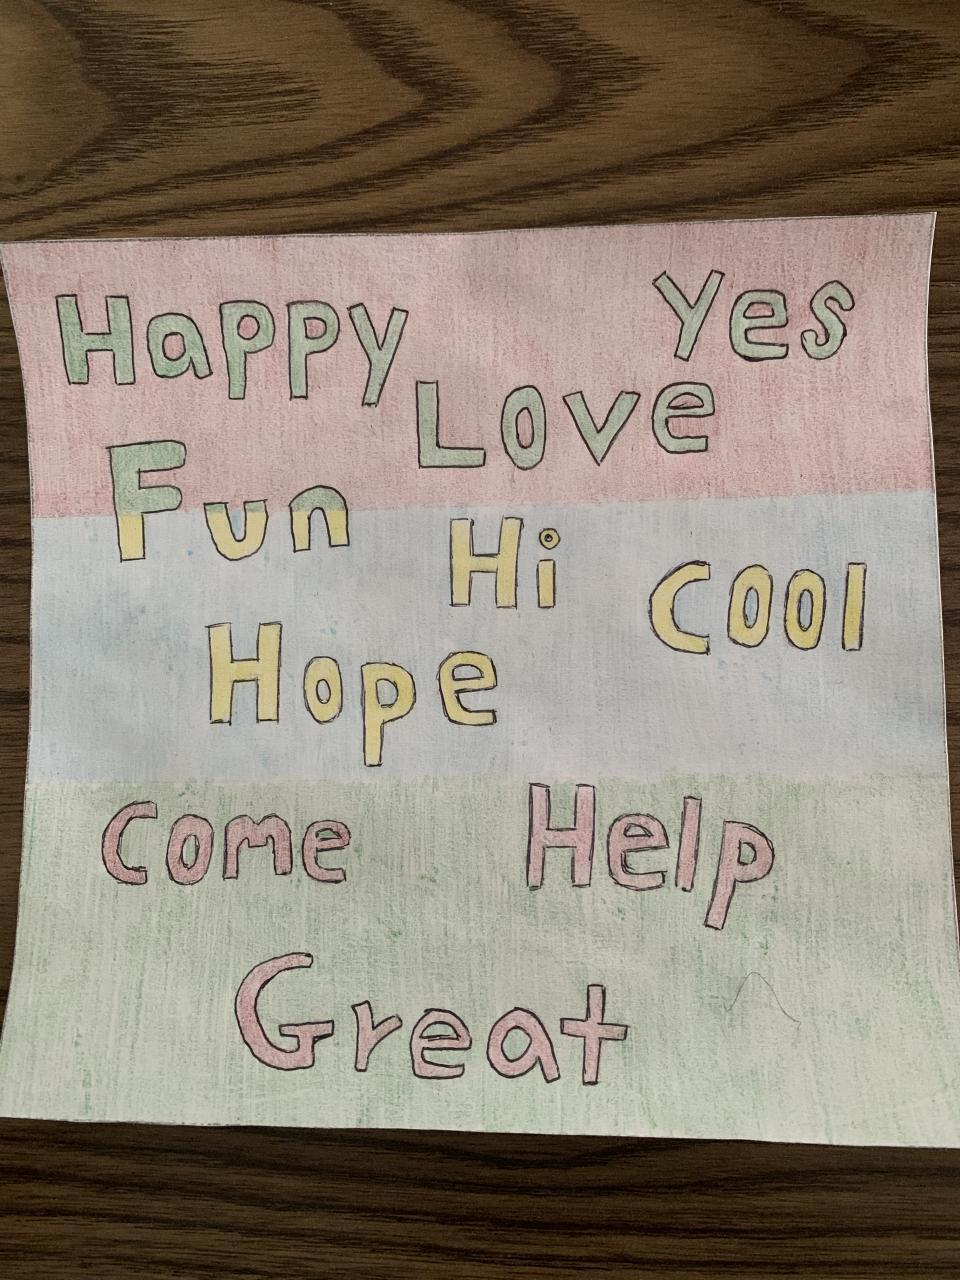 Happy Yes
Love
Fun
Hi
Cool
Hope
Come Help
Great